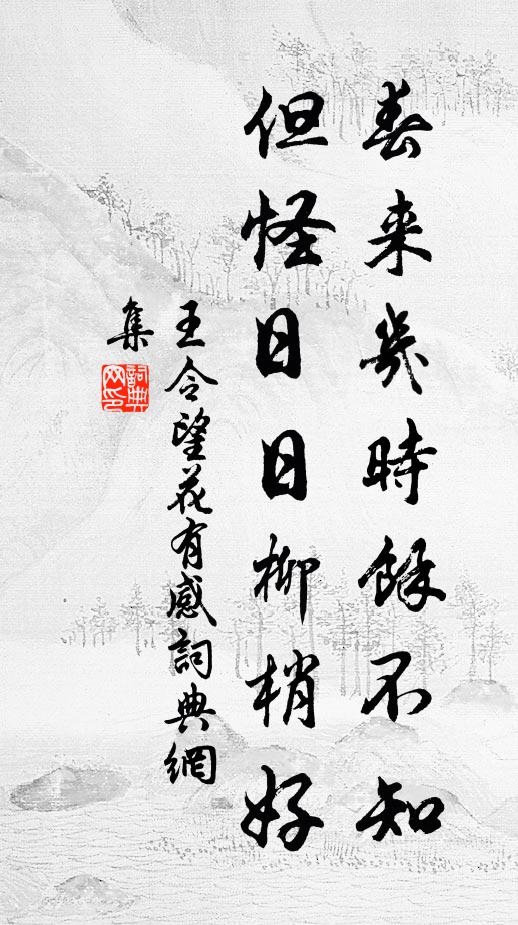 春来幾時餘不知
但怪日日柳梢好
王令望花有感詞典網
集
詞典
网印